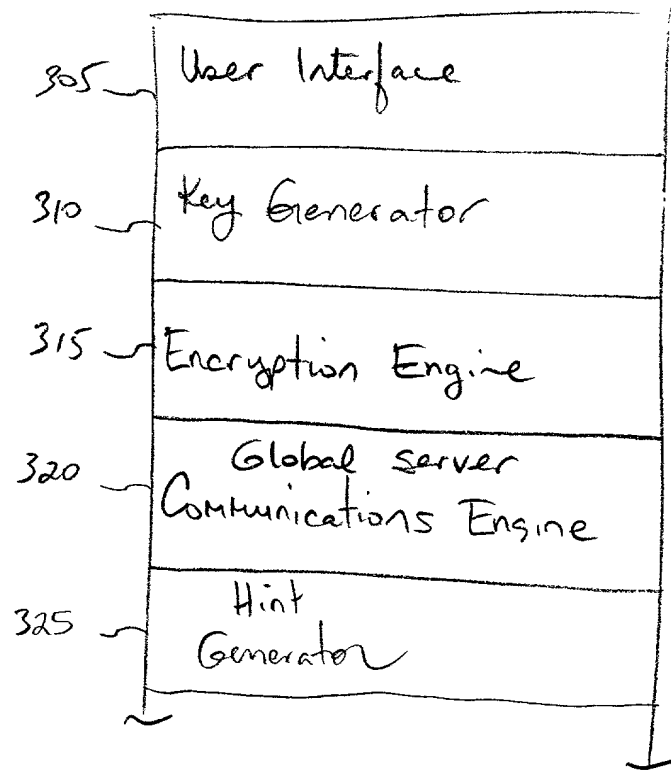 305
User Interface
310
Key Generator
315
Encryption Engine
320
Global server
Communications Engine
325
Hint
Generator